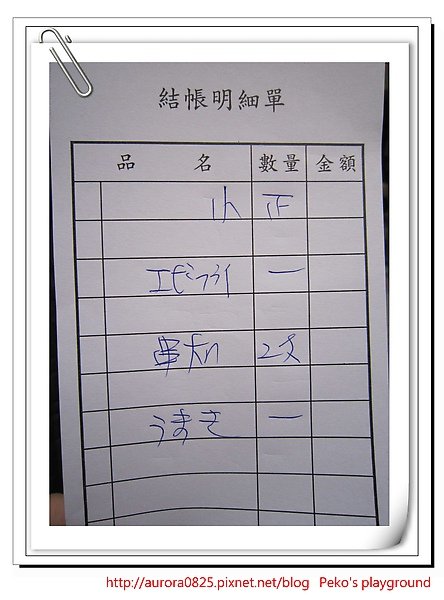 結帳明細單
品 名 數量 金額
小 正
エビフライ 一
串 2支
うまき 一
http://aurora0825.pixnet.net/blog Peko's playground